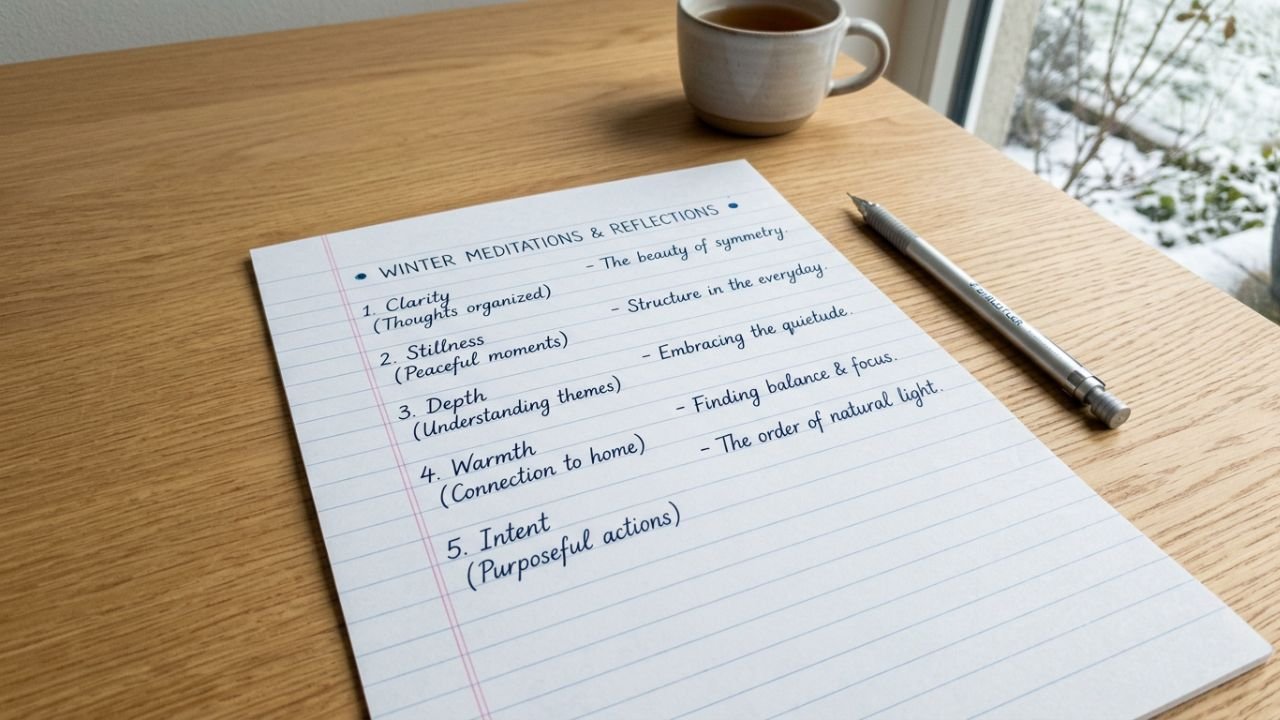 • WINTER MEDITATIONS & REFLECTIONS •
1. Clarity
(Thoughts organized)
2. Stillness
(Peaceful moments)
3. Depth
(Understanding themes)
4. Warmth
(Connection to home)
5. Intent
(Purposeful actions)
- The beauty of symmetry.
- Structure in the everyday.
- Embracing the quietude.
- Finding balance & focus.
- The order of natural light.